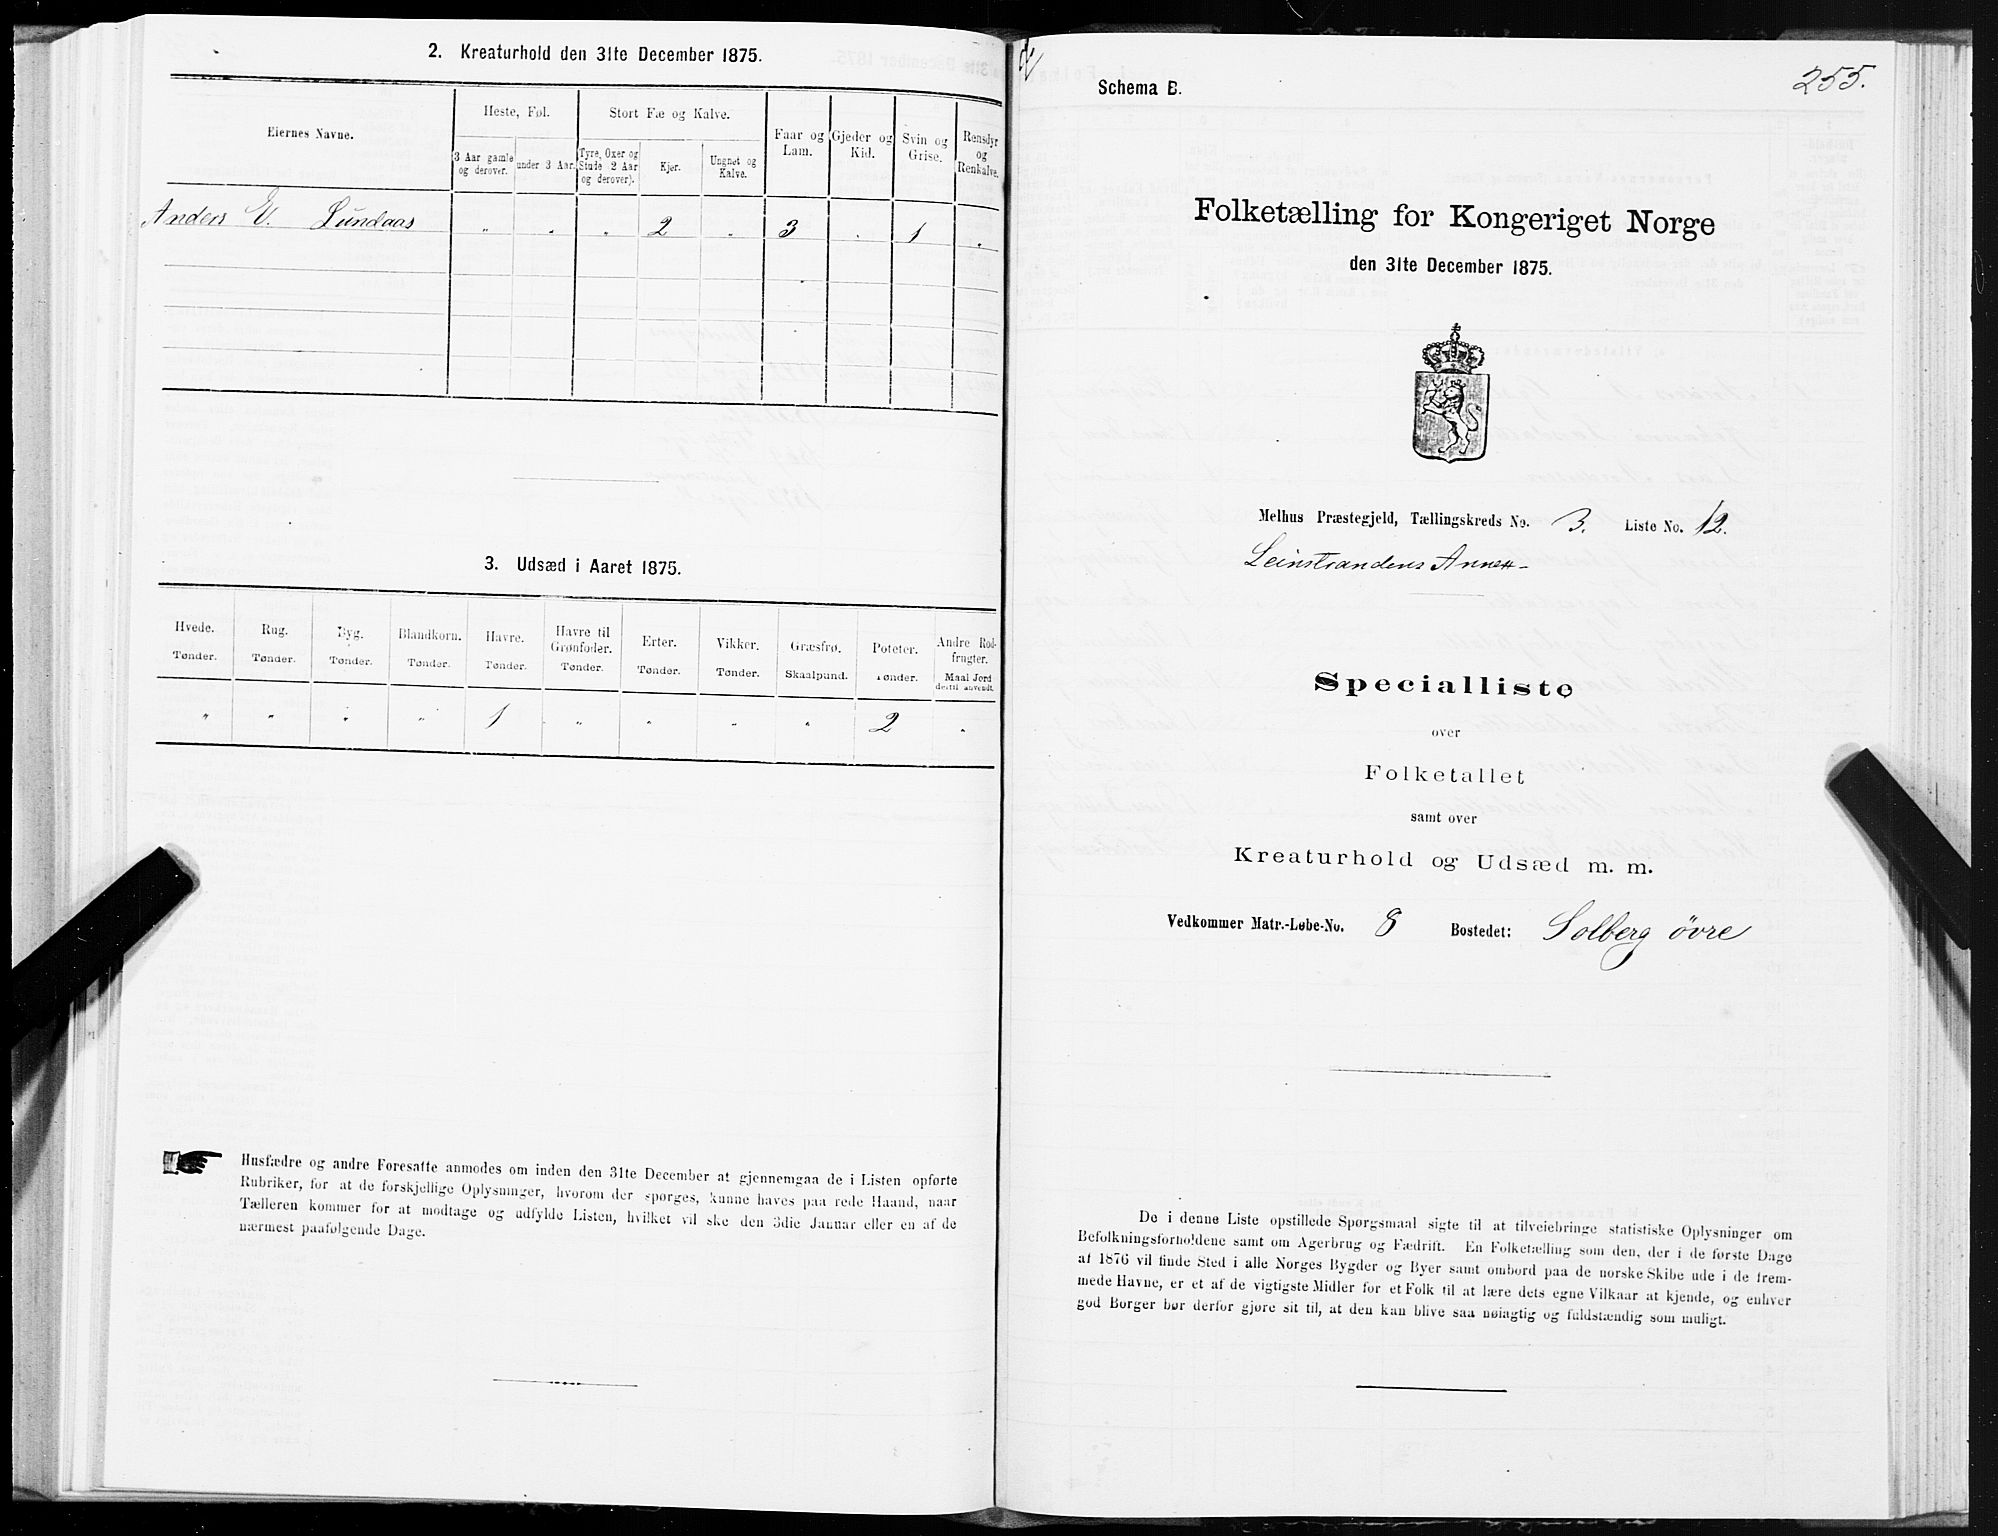 2. Kreaturhold den 31te December 1875.
Eiernes Navne.
Heste, Føl.
Stort Fæ og Kalve.
Faar og Lam.
Gjeder og Kid.
Svin og Grise.
Rensdyr og Renkalve.
3 Aar gamle og derover.
under 3 Aar.
Tyre, Oxer og Stude (2 Aar og derover).
Kjer.
Ungnet og Kalve.
Anders E. Lundaas " " " 2 " 3 . 1 "
3. Udsæd i Aaret 1875.
Hvede. Rug. Byg. Blandkorn. Havre. Havre til Grønfoder. Erter. Vikker. Græsfrø. Poteter. Andre Rodfrugter.
Tønder. Tønder. Tønder. Tønder. Tønder. Tønder. Tønder. Tønder. Skaalpund. Tønder. Maal Jord dertil anvendt.
" " " " 1 " " " " 2 "
Husfædre og andre Foresatte anmodes om inden den 31te December at gjennemgaa de i Listen opførte
Rubriker, for at de forskjellige Oplysninger, hvorom der spørges, kunne haves paa rede Haand, naar
Tælleren kommer for at modtage og udfylde Listen, hvilket vil ske den 3die Januar eller en af de
nærmest paafølgende Dage.
Schema B.
255.
Folketælling for Kongeriget Norge
den 31te December 1875.
Melhus Præstegjeld, Tællingskreds No. 3. Liste No. 12.
Leinstrandens Annex
Specialliste
over
Folketallet
samt over
Kreaturhold og Udsæd m. m.
Vedkommer Matr.-Løbe-No. 8 Bostedet: Solberg øvre
De i denne Liste opstillede Spørgsmaal sigte til at tilveiebringe statistiske Oplysninger om
Befolkningsforholdene samt om Agerbrug og Fædrift. En Folketælling som den, der i de første Dage
af 1876 vil finde Sted i alle Norges Bygder og Byer samt ombord paa de norske Skibe ude i de frem-
mede Havne, er et af de vigtigste Midler for et Folk til at lære dets egne Vilkaar at kjende, og enhver
god Borger bør derfor gjøre sit til, at den kan blive saa nøiagtig og fuldstændig som muligt.